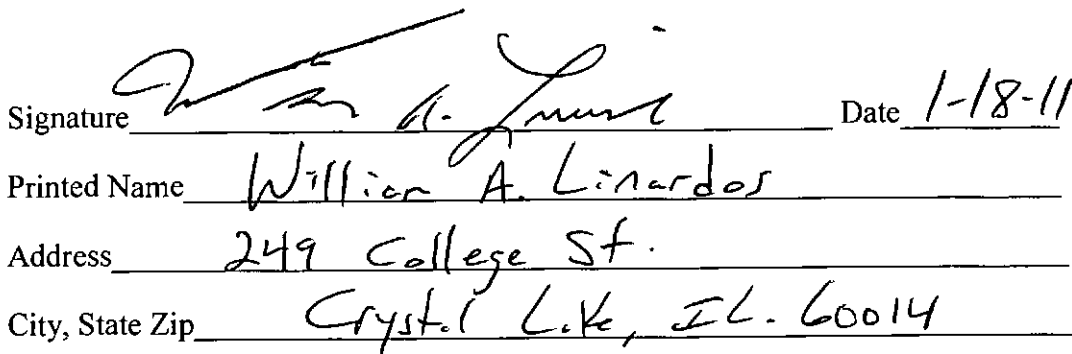 Signature William A. Linardos Date 1-18-11
Printed Name William A. Linardos
Address 249 College St.
City, State Zip Crystal Lake, IL. 60014